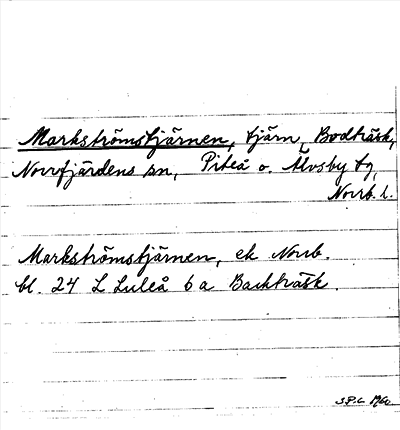 Markströmstjärnen, tjärn, Bodträsk,
Norrfjärdens sn, Piteå o. Älvsby tg,
Norrb. l.
Markströmstjärnen, ek Norrb.
bl. 24 L Luleå 6 a Backträsk.
1960